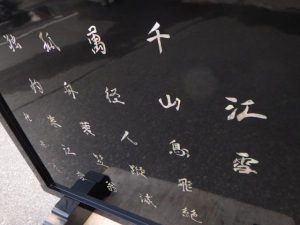 江雪
千山鳥飛絶
萬径人蹤滅
孤舟蓑笠翁
独釣寒江